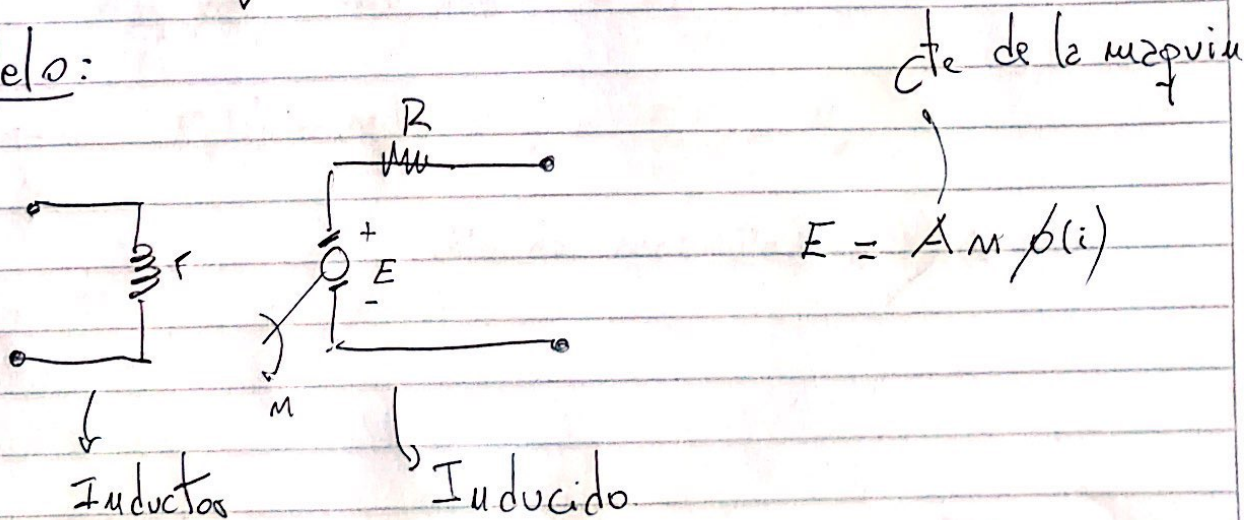 elo:
cte de la maquin
R
+
E
-
r
E = A n ϕ(i)
n
Inductor
Inducido